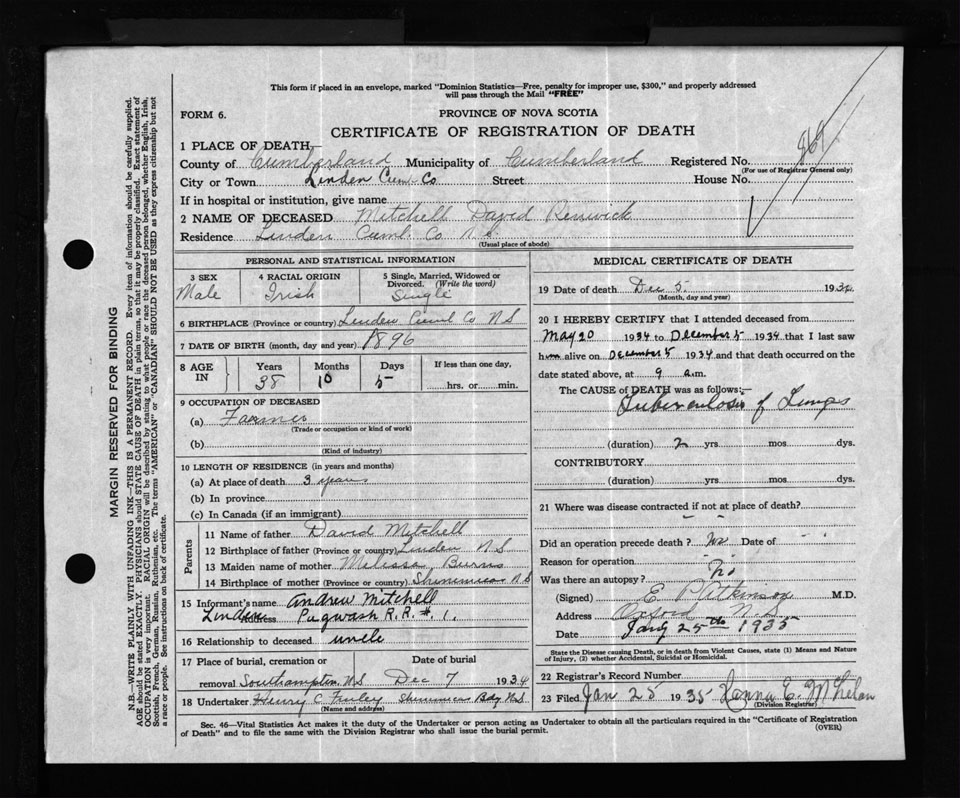 This form if placed in an envelope, marked "Dominion Statistics—Free, penalty for improper use, $300," and properly addressed
will pass through the Mail "FREE"
FORM 6.
PROVINCE OF NOVA SCOTIA
CERTIFICATE OF REGISTRATION OF DEATH
1 PLACE OF DEATH—
County of Cumberland Municipality of Cumberland Registered No. 869
(For use of Registrar General only)
City or Town Linden Cumb Co Street House No.
If in hospital or institution, give name
2 NAME OF DECEASED Mitchell David Renwick
Residence Linden Cumb. Co N S
(Usual place of abode)
PERSONAL AND STATISTICAL INFORMATION
3 SEX Male
4 RACIAL ORIGIN Irish
5 Single, Married, Widowed or Divorced. (Write the word) Single
6 BIRTHPLACE (Province or country) Linden Cumb Co N S
7 DATE OF BIRTH (month, day and year) 1896
8 AGE IN Years 38 Months 10 Days 5 If less than one day, hrs. or min.
9 OCCUPATION OF DECEASED
(a) Farmer
(Trade or occupation or kind of work)
(b)
(Kind of industry)
10 LENGTH OF RESIDENCE (in years and months)
(a) At place of death 3 years
(b) In province
(c) In Canada (if an immigrant)
Parents
11 Name of father David Mitchell
12 Birthplace of father (Province or country) Linden N S
13 Maiden name of mother Melissa Burns
14 Birthplace of mother (Province or country) Shinimicas N S
15 Informant's name Andrew Mitchell
Linden Address Pugwash R.R. # 1.
16 Relationship to deceased uncle
17 Place of burial, cremation or removal Southampton N S Date of burial Dec 7 1934
18 Undertaker Henry C Finley Shinimicas Bdg N S
(Name and address)
MEDICAL CERTIFICATE OF DEATH
19 Date of death Dec 5. 1934
(Month, day and year)
20 I HEREBY CERTIFY that I attended deceased from
May 20 1934 to December 5 1934 that I last saw
him alive on December 5 1934 and that death occurred on the
date stated above, at 9 a.m.
The CAUSE of DEATH was as follows:—
Tuberculosis of Lungs
(duration) 2 yrs mos. dys.
CONTRIBUTORY
(duration) yrs mos. dys.
21 Where was disease contracted if not at place of death?
Did an operation precede death? No Date of
Reason for operation
Was there an autopsy? No
(Signed) E P Atkinson M.D.
Address Oxford N.S
Date Jany 25th 1935
State the Disease causing Death, or in death from Violent Causes, state (1) Means and Nature of Injury, (2) whether Accidental, Suicidal or Homicidal.
22 Registrar's Record Number
23 Filed Jan 28 1935
(Division Registrar)
Sec. 46—Vital Statistics Act makes it the duty of the Undertaker or person acting as Undertaker to obtain all the particulars required in the "Certificate of Registration
of Death" and to file the same with the Division Registrar who shall issue the burial permit.
(OVER)
MARGIN RESERVED FOR BINDING
N.B.—WRITE PLAINLY WITH UNFADING INK—THIS IS A PERMANENT RECORD. Every item of information should be carefully supplied.
AGE should be stated EXACTLY. PHYSICIANS should STATE CAUSE OF DEATH in plain terms, so that it may be properly classified. Exact statement of
OCCUPATION is very important. RACIAL ORIGIN will be described by stating to what people or race the deceased person belonged, whether English, Irish,
Scottish, French, German, Russian, Ruthenian, etc. The terms "AMERICAN" or "CANADIAN" SHOULD NOT BE USED as they express citizenship but not
a race or people. See instructions on back of certificate.